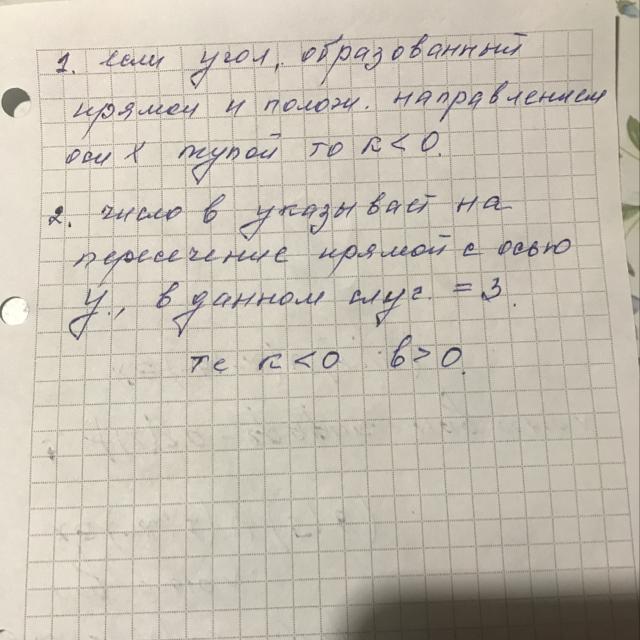 1. если угол, образованный
прямой и полож. направлением
оси X тупой то к < 0.
2. число в указывает на
пересечение прямой с осью
У, в данном случ. = 3.
те к < 0 в > 0.